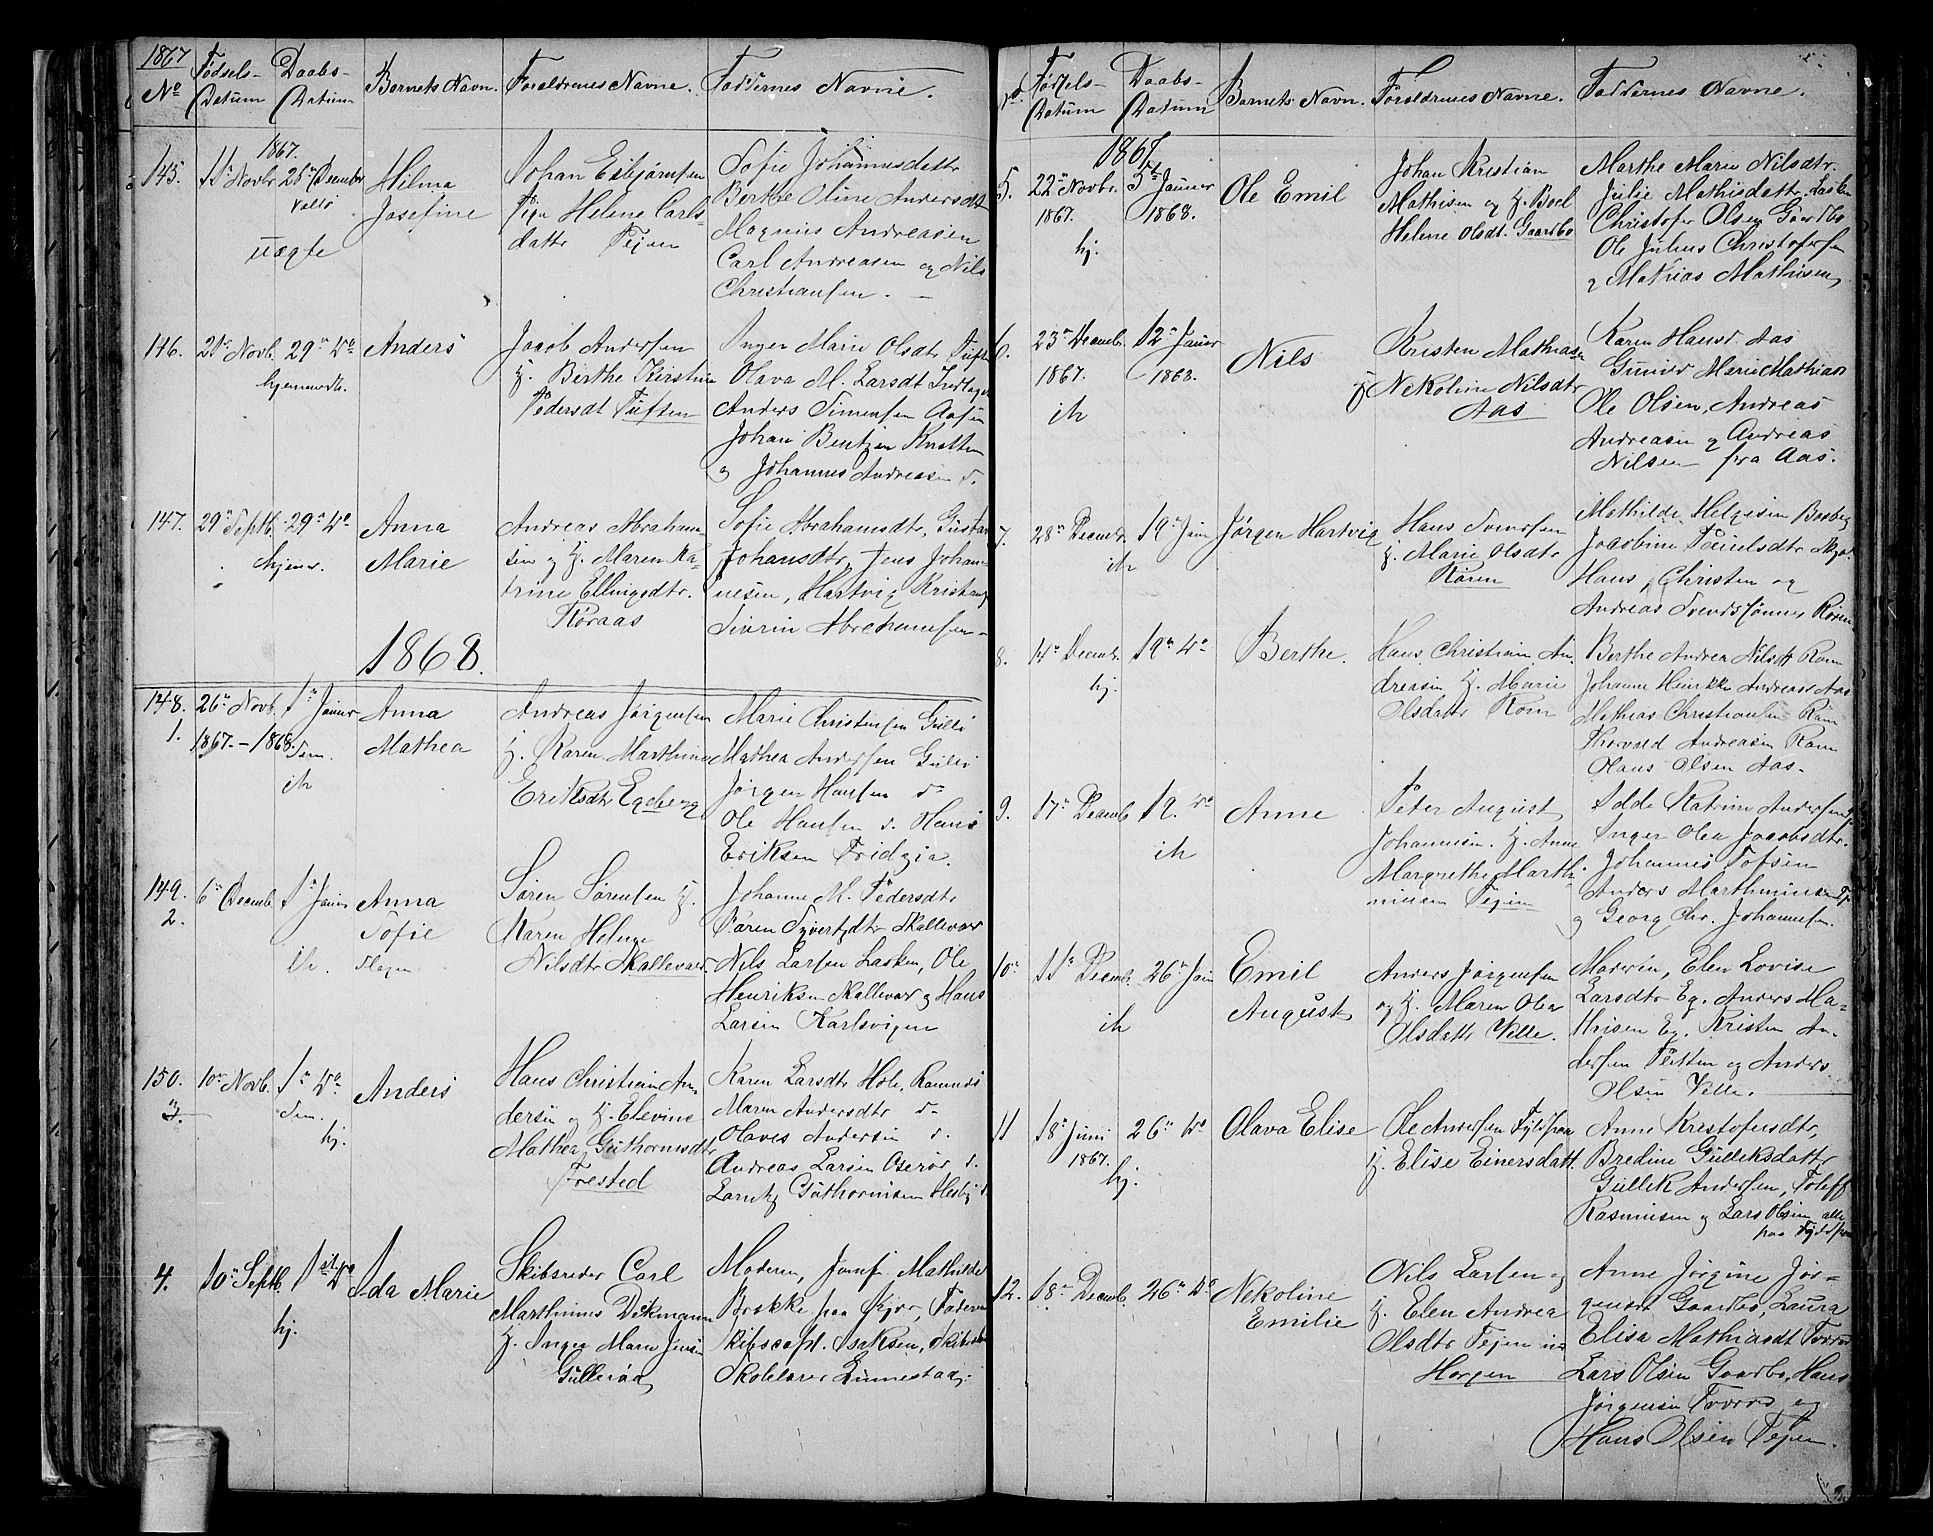 1867
No
Fødsels-
Datum
Daabs-
Datum
Barnets Navn.
Forældrenes Navne.
Faddernes Navne.
145.
11te Novbr
1867.
26 December
Vallø
uægte
Hilma
Josefine
Johan Esbjørnsen
Pige Helene Carls-
datter Tejen
Sofie Johannesdatter
Berthe Oline Andersdt
Magnus Andreasen
Carl Andreasen og Nils
Christiansen.
146.
21 Novb.
29 do
hjemmedb.
Anders
Jacob Andersen
H. Berthe Kirstine
Pedersdt Tuften
Inger Marie Olsdtr Tuften
Olava M. Larsdt
Anders Simensen Aasen
Johan Bentzen Knatten
og Johannes Andreasen d.
147.
29 Septb.
29 do
hjemm.
Anna
Marie
Andreas Abraham-
sen og H. Maren Ka-
trine Ellingsdtr.
Roraas
Sofie Abrahamsdtr, Gustava
Johansdtr, Jens Johan-
nesen, Hartvig Kristians
Severin Abrahamsen
1868.
148.
1.
26 Novb.
1867.
1 Januar
1868.
Sem.
ik
Anna
Mathea
Andreas Jørgensen
H. Karen Marthine
Eriksdtr Egeberg
Marie Christensen Gulli
Mathea Andersen Gulli
Jørgen Hansen d
Ole Hansen d. Hans
Eriksen Fridgia.
149.
2.
6 Decemb.
1 Januar
ik.
Anna
Sofie
Slagen
Søren Sørensen H.
Karen Helene
Nilsdtr Skallevold
Johanne M. Pedersdtr
Karen Syvertsdtr Skallevold
Nils Larsen Lasken, Ole
Henriksen Skallevold og Hans
Larsen Karlsvigen
150.
3.
10 Novb.
1 do
Sem.
hj.
Anders
Hans Christian An-
dersen og H. Elevine
Mathea Guthormsdtr
Frested
Karen Larsdtr Hole, Ramnes
Maren Andersdtr d
Olaves Andersen d.
Andreas Larsen Oserød d.
Larntz Guthormsen Hesby d.
4.
10 Septb.
1ste do
hj.
Ida Marie
Skibsreder Carl
Marthinus Dekmann
H. Inger Marie Jensen
Gullerød
Moderen, Jomfr. Mathilde
Brekke paa Kjær, Faderen
Skibscapt. Isaksen,
Skolelærer Linnestad.
Fødsels-
Datum
Daabs-
Datum
Barnets Navn.
Forældrenes Navne.
Faddernes Navne.
1867
5.
22 Novbr.
1867.
hj.
5 Januar
1868.
Ole Emil
Johan Kristian
Mathisen og H. Boel
Helene Olsdt. Gaardbo
Marthe Marie Nilsdtr.
Julie Mathisdatter Lasken
Christofer Olsen Gaardbo
Ole Julius Christofersen
og Mathias Mathisen
6.
23 Decemb.
1867.
ik
12 Januar
1868.
Nils
Kristen Mathiasen
H Nekoline Nilsdtr
Aas
Karen Hansd. Aas
Gunild Marie Mathias
Ole Olsen, Andreas
Andreasen og Andreas
Nilsen fra Aas.
7.
28 Decembr.
ik
19 Jan
Jørgen Hartvig
Hans Svendsen
H. Marie Olsdtr
Roren
Mathilde Helgesen Basberg
Jacobine Paulsdtr
Hans, Christen og
Andreas Svendssønner Roren
8.
14 Decembr.
hj.
19 do
Berthe.
Hans Christian An-
dreasen H. Marie
Olsdatter Rom
Berthe Andrea Nilsdt Rom
Johanne Henrikke Andreas Aas
Mathias Christiansen Rom
Thorvald Andreasen Rom
Olaus Olsen Aas.
9.
17 Decemb.
ik
19. do
Anne
Peter August
Johannesen. H. Anne
Margrethe Marth-
inusen Tejen
Adde Katrine Andersen
Inger Olea Jacobsdtr.
Johannes Tofsen
Anders Marthinusen
og Georg Chr. Johannesen.
10
11 Decemb.
ik
26 Jan
Emil
August
Anders Jørgensen
og H. Maren Olea
Olsdatter Velle.
Moderen, Elen Lovise
Larsdtr Eg, Anders Ma-
thisen Eg, Kristen An-
dersen Pütten og Anders
Olsen Velle.
11
18 Juni
1867.
hj.
26 do
Olava Elise
Ole Andersen Fyldpaa
H. Elise Einersdatt
Anne Kristofersdtr,
Bredine Gulliksdatter
Gullik Andersen, Tolleff
Rasmusen og Lars Olsen alle
paa Fyldpaa
12.
18 Decemb.
26 do
Nekoline
Emilie
Nils Larsen og
H. Elen Andrea
Olsdtr Tejen
Horgen
Anne Jørgine Jør-
gensdt Gaardbo, Laura
Elisa Mathiasdt Tverød
Lars Olsen Gaardbo, Hans
Jørgensen Tverød og
Hans Olsen Tejen.